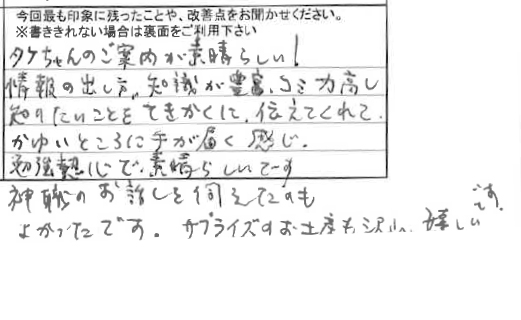 今回最も印象に残ったことや、改善点をお聞かせください。
※書ききれない場合は裏面をご利用下さい
タケちゃんのご案内が素晴らしい!
情報の出し方、知識が豊富、コミ力高し
知りたいことをてきかくに、伝えてくれて、
かゆいところに手が届く感じ。
勉強熱心で素晴らしいです
神職のお話しを伺えたのも
よかったです。サプライズのお土産も沢山、嬉しいです。